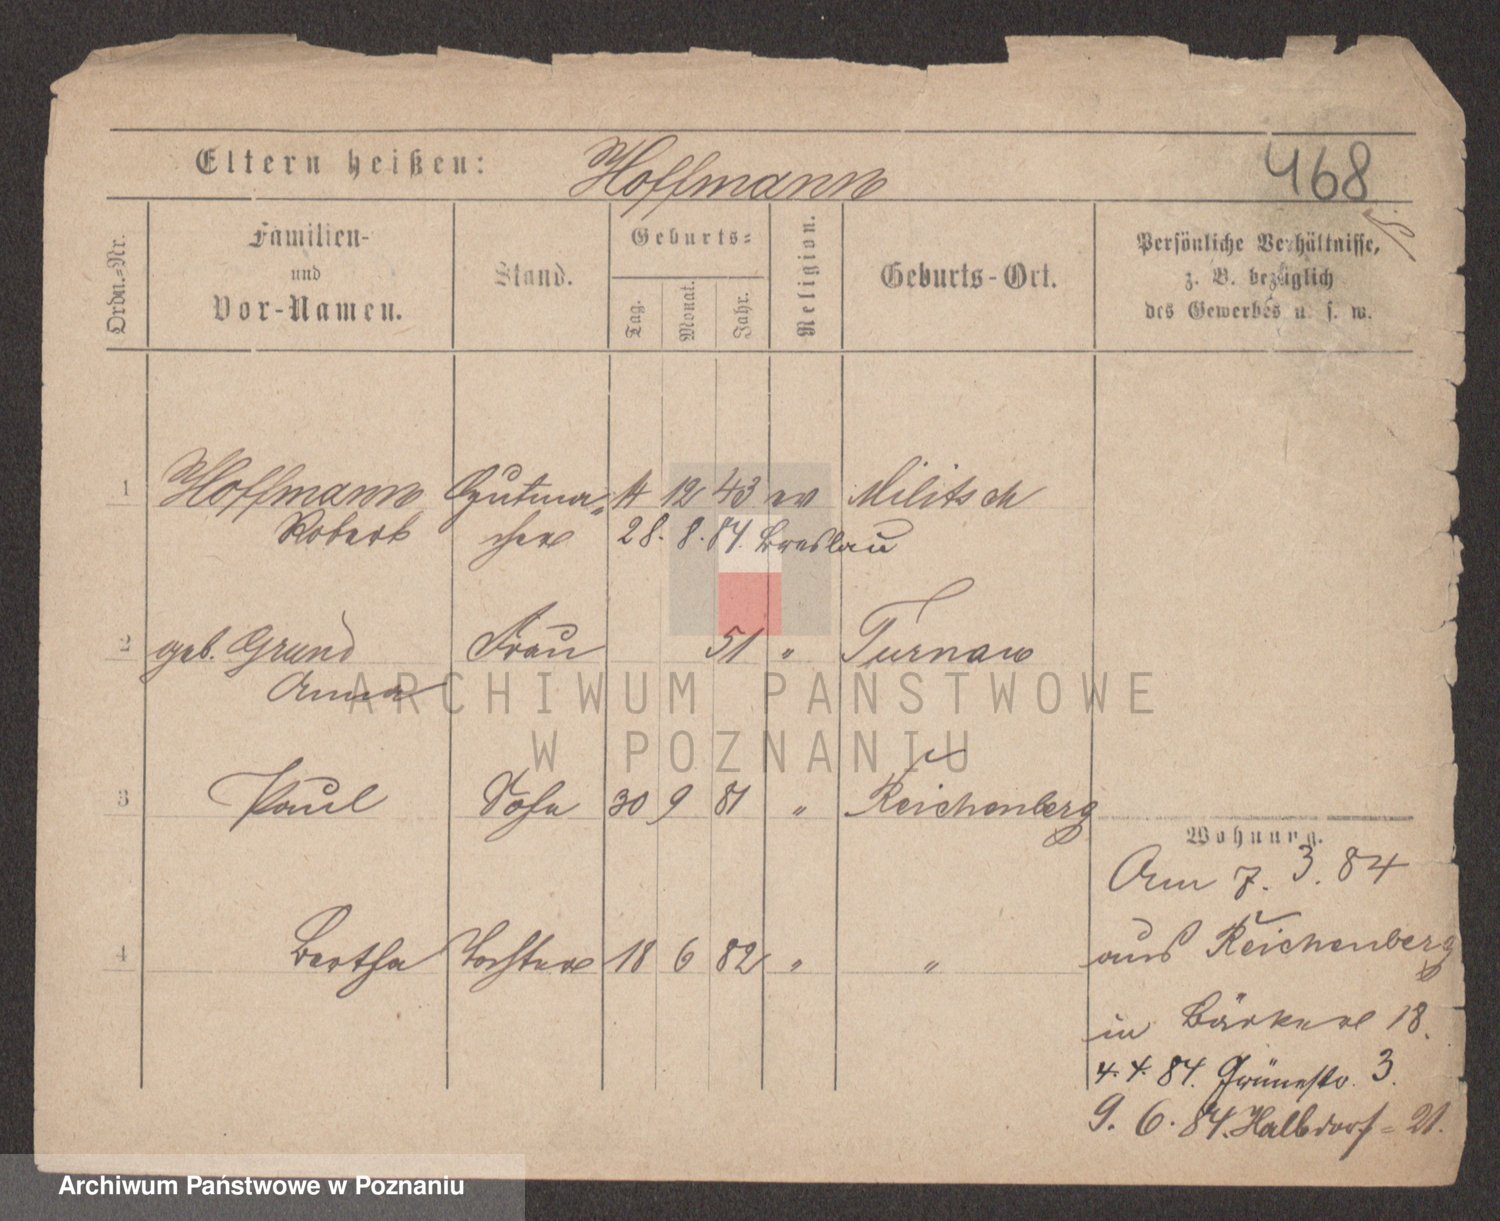 Eltern heißen: Hoffmann 468
Ordn.-Nr.
Familien-
und
Vor-Namen.
Stand.
Geburts-
Tag.
Monat.
Jahr.
Religion.
Geburts-Ort.
Persönliche Verhältnisse,
z. B. bezüglich
des Gewerbes u. s. w.
1 Hoffmann Hutma- 14 12 43 ev Militsch
Robert cher 28. 8. 84. Breslau
2 geb. Grund Frau 51 " Turnau
Anna
3 Paul Sohn 30 9 81 " Reichenberg
Wohnung.
Am 7. 3. 84
aus Reichenberg
4 Bertha Tochter 18 6 82 " "
in Bäcker 18.
4. 4. 84. Grünestr. 3.
9. 6. 84. Halbdorf- 21.
ARCHIWUM PAŃSTWOWE
W POZNANIU
Archiwum Państwowe w Poznaniu